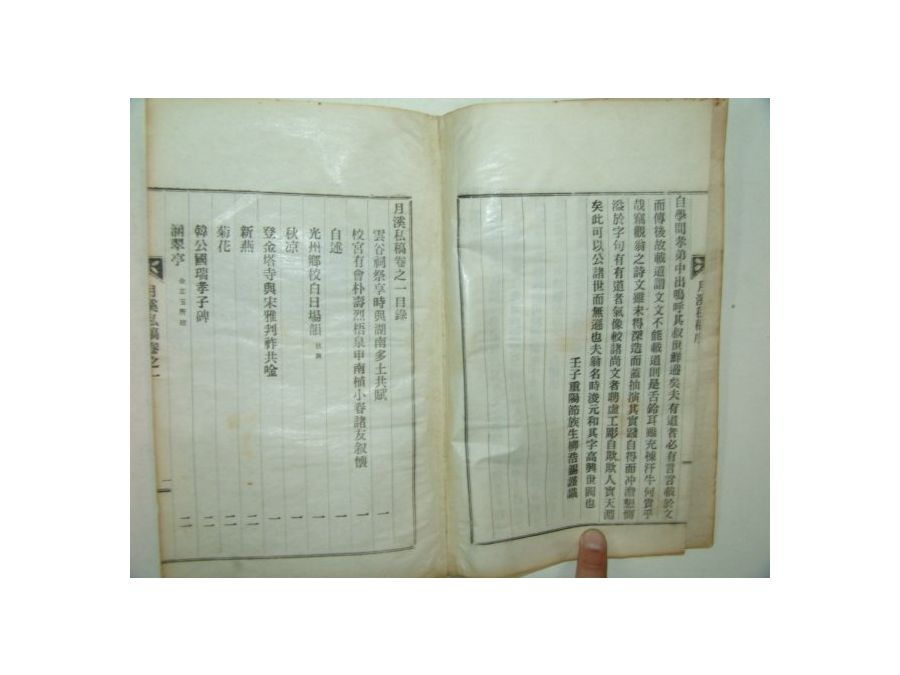 自學問孝弟中出嗚呼其叙世鮮邊矣夫有道者必有言言載於文
而傳後故載道謂文文不能載道則是舌鈴耳雖充棟汗牛何貴乎
哉竊觀翁之詩文雖未得深造而蓋抽演其實踐自得而冲澹懇惻
溢於字句有有道者氣像較諸尚文者騁虛工彫自欺欺人實天淵
矣此可以公諸世而無過也夫翁名時淩元和其字高興世閥也
壬子重陽節族生 浩 謹識
月溪私稿序
月溪私稿卷之一目錄
雲谷祠祭享時與湖南多士共賦 一
校宮有會朴壽烈梧泉申南植小春諸友叙懷 一
自述 一
光州鄉校白日場韻 一
秋凉 一
登金塔寺與宋雅判祚共唫 一
新燕 二
菊花 二
韓公國瑞孝子碑 二
翠亭 二
月溪私稿卷之一
一